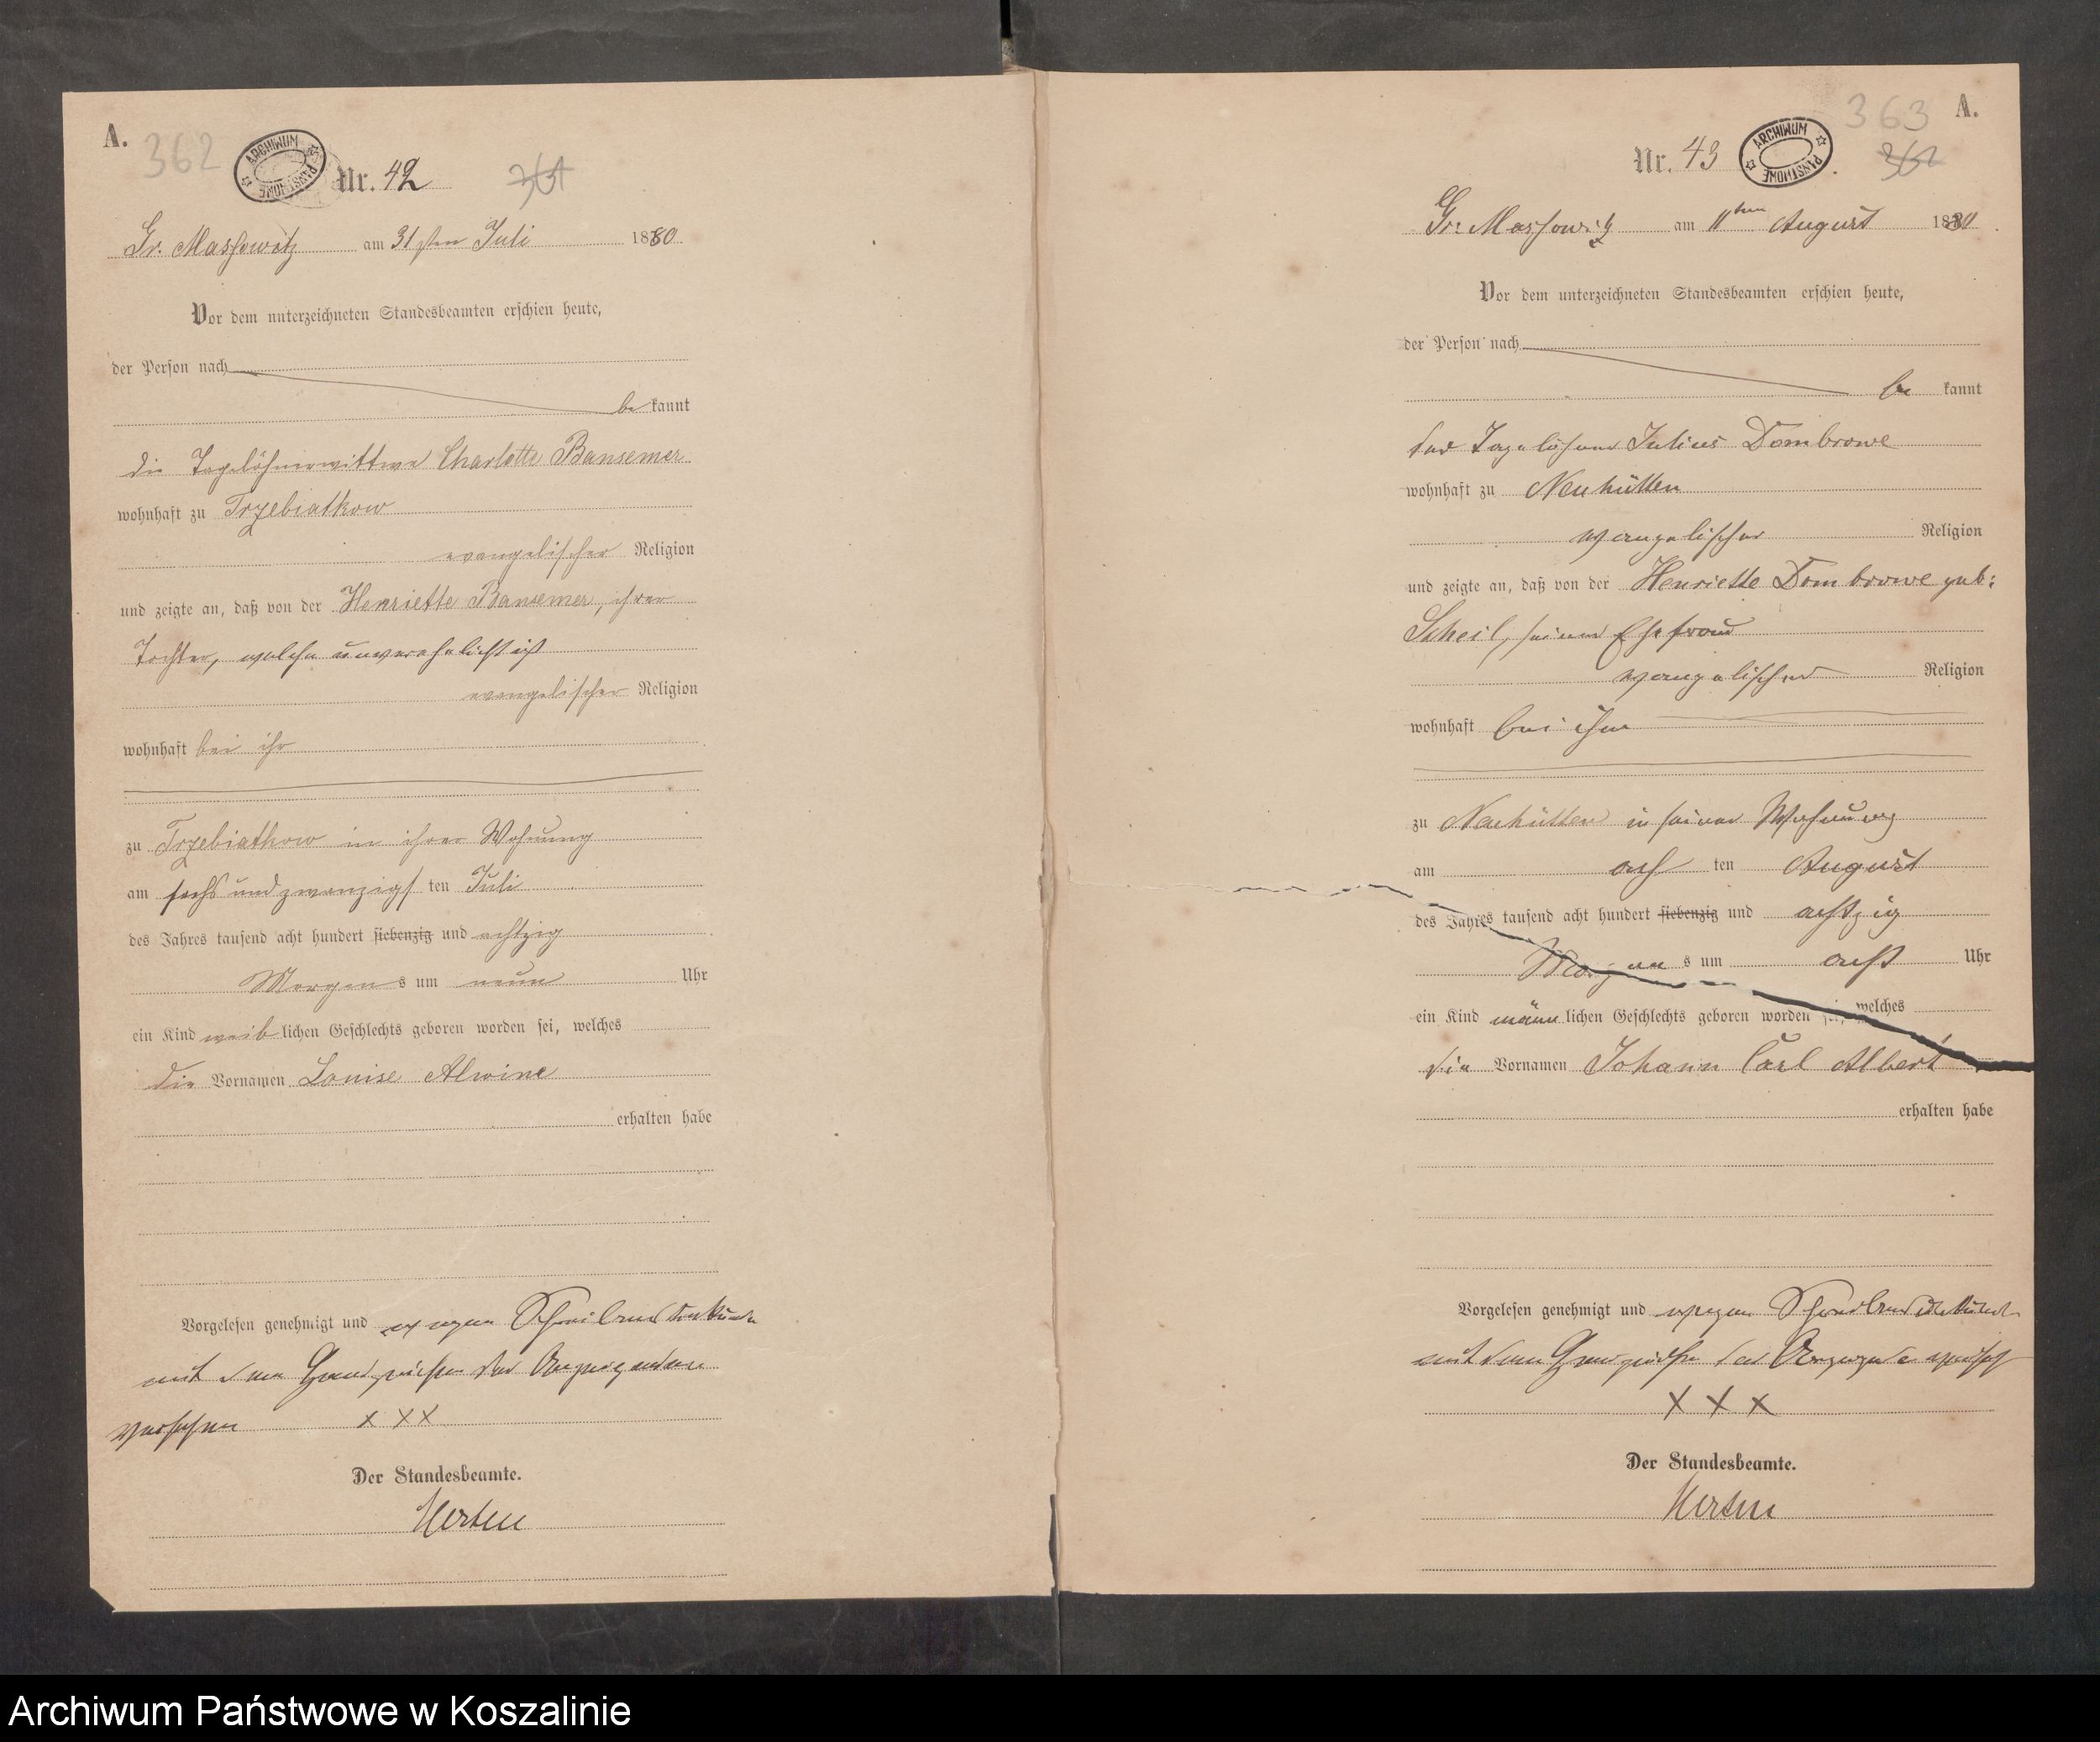 A.
362
ARCHIWUM PAŃSTWOWE
Nr. 42
361
Gr. Massowitz am 31sten Juli 1880
Vor dem unterzeichneten Standesbeamten erschien heute,
der Person nach
be kannt
die Tagelöhnerwittwe Charlotte Bansemer
wohnhaft zu Trzebiatkow
evangelischer Religion
und zeigte an, daß von der Henriette Bansemer, ihrer
Tochter, welche unverehelicht ist
evangelischer Religion
wohnhaft bei ihr
zu Trzebiatkow in ihrer Wohnung
am sechs und zwanzigs ten Juli
des Jahres tausend acht hundert siebenzig und achtzig
Morgen s um neun Uhr
ein Kind weib lichen Geschlechts geboren worden sei, welches
die Vornamen Louise Alwine
erhalten habe
Vorgelesen genehmigt und wegen Schreibensunkunde
mit dem Handzeichen der Anzeigenden
versehen x x x
Der Standesbeamte.
A.
363
ARCHIWUM PAŃSTWOWE
Nr. 43
362
Gr: Massowitz am 11ten August 1880
Vor dem unterzeichneten Standesbeamten erschien heute,
der Person nach
be kannt
der Tagelöhner Julius Dombrowe
wohnhaft zu Neuhütten
evangelischer Religion
und zeigte an, daß von der Henriette Dombrowe geb:
Scheil, seiner Ehefrau
evangelischer Religion
wohnhaft bei ihm
zu Neuhütten in seiner Wohnung
am ach ten August
des Jahres tausend acht hundert siebenzig und achtzig
Morgen s um acht Uhr
ein Kind männ lichen Geschlechts geboren worden sei, welches
die Vornamen Johann Carl Albert
erhalten habe
Vorgelesen genehmigt und wegen Schreibensunkunde
mit dem Handzeichen des Anzeigenden versehen
X X X
Der Standesbeamte.
Archiwum Państwowe w Koszalinie